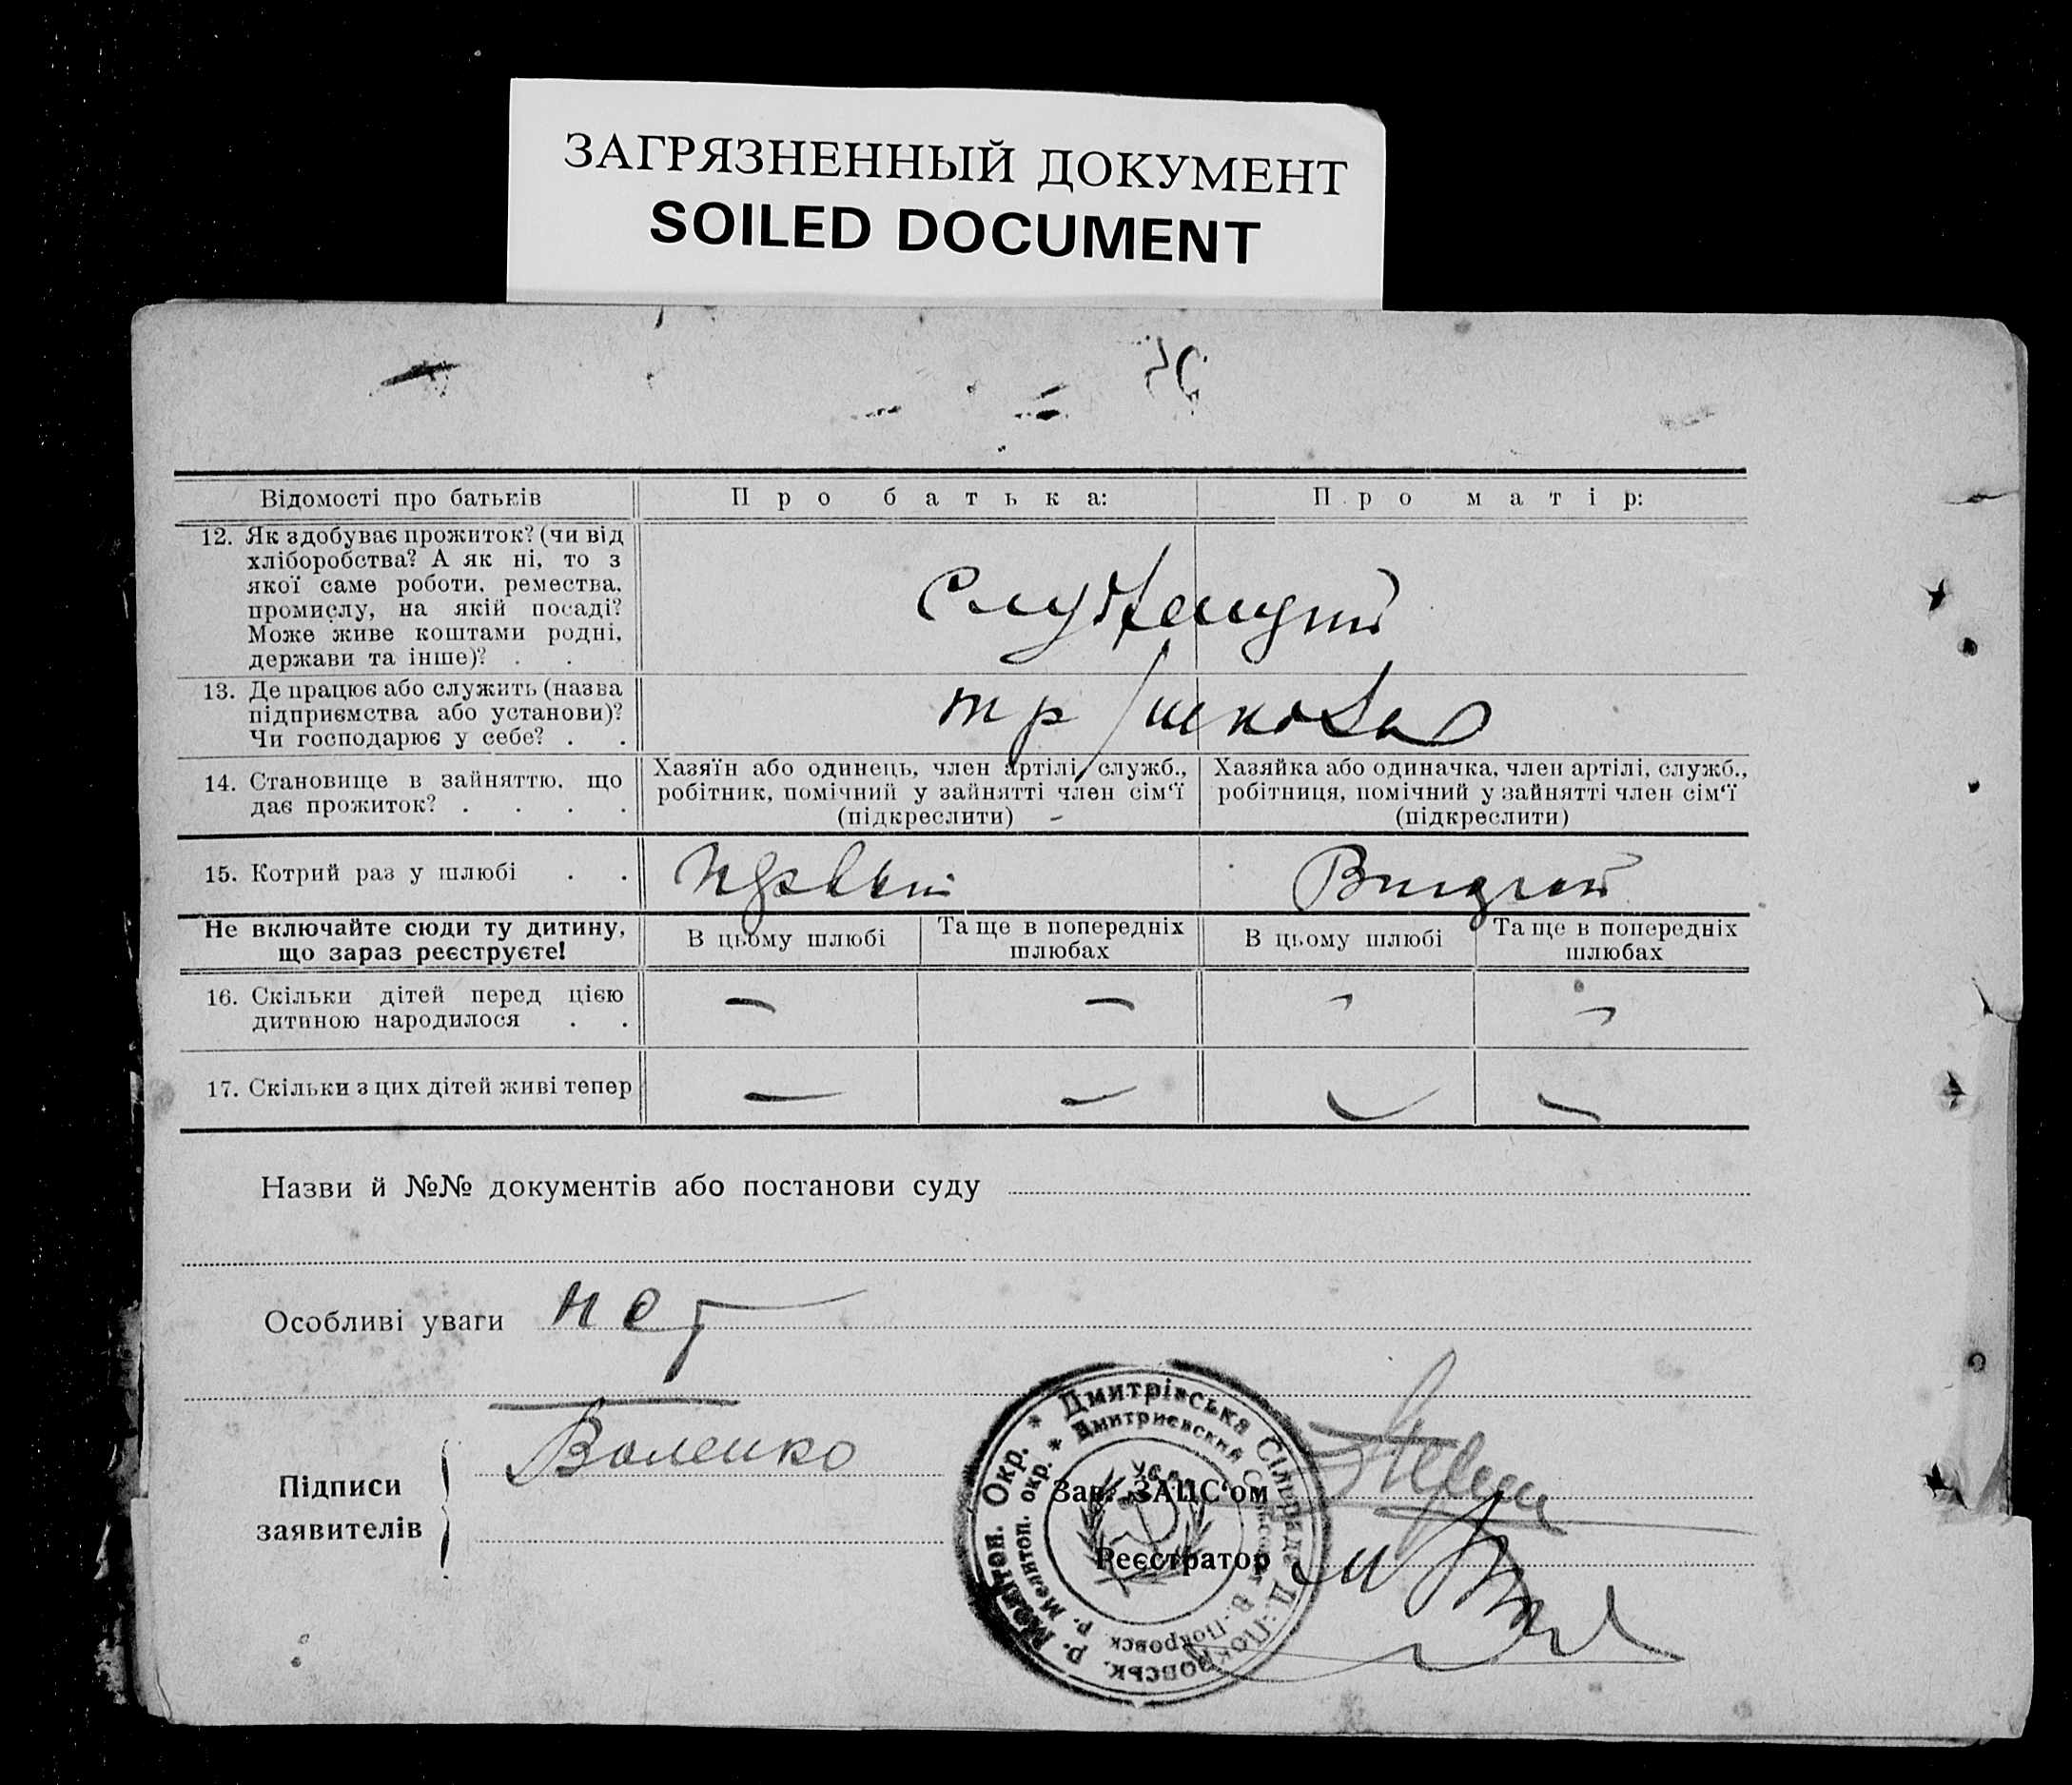 ЗАГРЯЗНЕННЫЙ ДОКУМЕНТ
SOILED DOCUMENT
Відомості про батьків
Про батька:
Про матір:
12. Як здобуває прожиток? (чи від
хліборобства? А як ні, то з
якої саме роботи, ремества,
промислу, на якій посаді?
Може живе коштами родні,
держави та інше)? . .
Служащий
13. Де працює або служить (назва
підприємства або установи)?
Чи господарює у себе? . .
тр/школа
14. Становище в зайняттю, що
дає прожиток? . . . .
Хазяїн або одинець, член артілі, служб.,
робітник, помічний у зайнятті член сім‘ї
(підкреслити) -
Хазяйка або одиначка, член артілі, служб.,
робітниця, помічний у зайнятті член сім‘ї
(підкреслити)
15. Котрий раз у шлюбі . .
Первый
Второй
Не включайте сюди ту дитину,
що зараз реєструєте!
В цьому шлюбі
Та ще в попередніх
шлюбах
В цьому шлюбі
Та ще в попередніх
шлюбах
16. Скільки дітей перед цією
дитиною народилося . .
— — — —
17. Скільки з цих дітей живі тепер
— — — —
Назви й №№ документів або постанови суду
Особливі уваги нет
Підписи
заявителів
Валенко
Зав. ЗАЦС‘ом
Реєстратор
* Дмитрівська Сільрада
Покровськ. р. Мелітоп. Окр.
* Дмитриевский
Покровск. р. Мелитоп. окр.